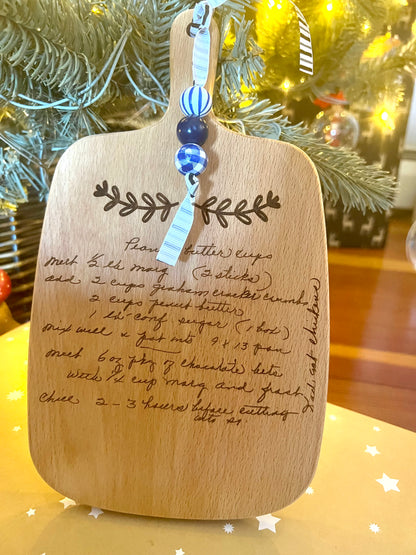 Peanut butter cups
melt ½ lb marg (2 sticks)
add 2 cups graham cracker crumbs
2 cups penut butter
1 lb conf. sugar (1 box)
Mix well & pat into 9 x 13 pan
Melt 6 oz pkg of chocolate bits
with ¼ cup marg and frost
Chill 2 - 3 hours before cutting
into sq.